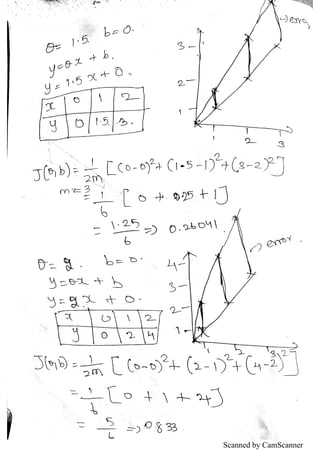 θ = 1.5. b=0.
y=θx + b.
y = 1.5 x + 0.
x 0 1 2
y 0 1.5 3.
3
2
1
1 2 3
error
J(θ,b) = 1/2m [(0-0)²+(1.5-1)²+(3-2)²]
m=3
= 1/6 [0 + 0.25 + 1]
= 1.25/6 => 0.26041.
θ = 2. b=0.
y=θx + b
y=2x + 0.
x 0 1 2
y 0 2 4
4
3
2
1
1 2 3
error.
J(θ,b) = 1/2m [(0-0)²+ (2-1)²+(4-2)²]
= 1/6 [0 + 1 + 4]
= 5/6 => 0.833
Scanned by CamScanner